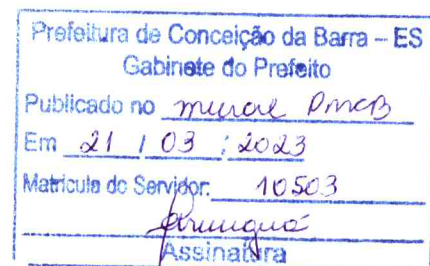 Prefeitura de Conceição da Barra – ES
Gabinete do Prefeito
Publicado no mural PMCB
Em 21 / 03 / 2023
Matricula do Servidor: 10503
Assinatura